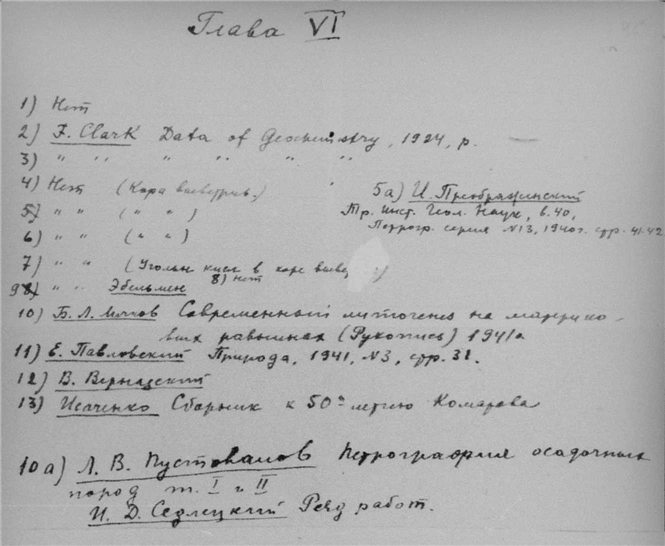 Глава VI
1) Нет
2) F. Clark Data of Geochemistry, 1924, p. —
3) " " " " " "
4) Нет (Кора выветрив.)
5) " " ( " " )
5а) И. Преображенский
Тр. Инст. Геол. Наук, в. 40,
Петрогр. серия N13, 1940г. стр. 41-42
6) " " ( " " )
7) " " (Угольн кисл в коре выве )
8) нет
9) " " Эбельмен
10) Б. Л. Личков Современный литогенез на материко-
вых равнинах (Рукопись) 1941а
11) Е. Павловский Природа, 1941, N3, стр. 31.
12) В. Вернадский
13) Исаченко Сборник к 50-летию Комарова
10а) Л. В. Пустовалов Петрография осадочных
пород т. I и II
И. Д. Седлецкий Ряд работ.